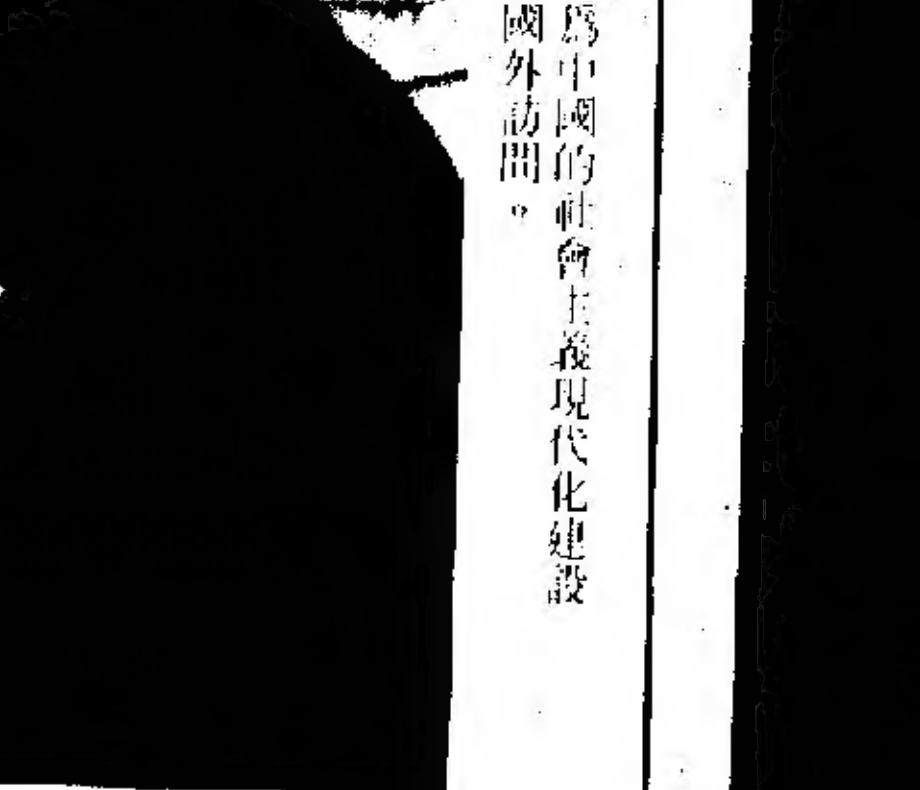 爲中國的社會主義現代化建設
國外訪問。